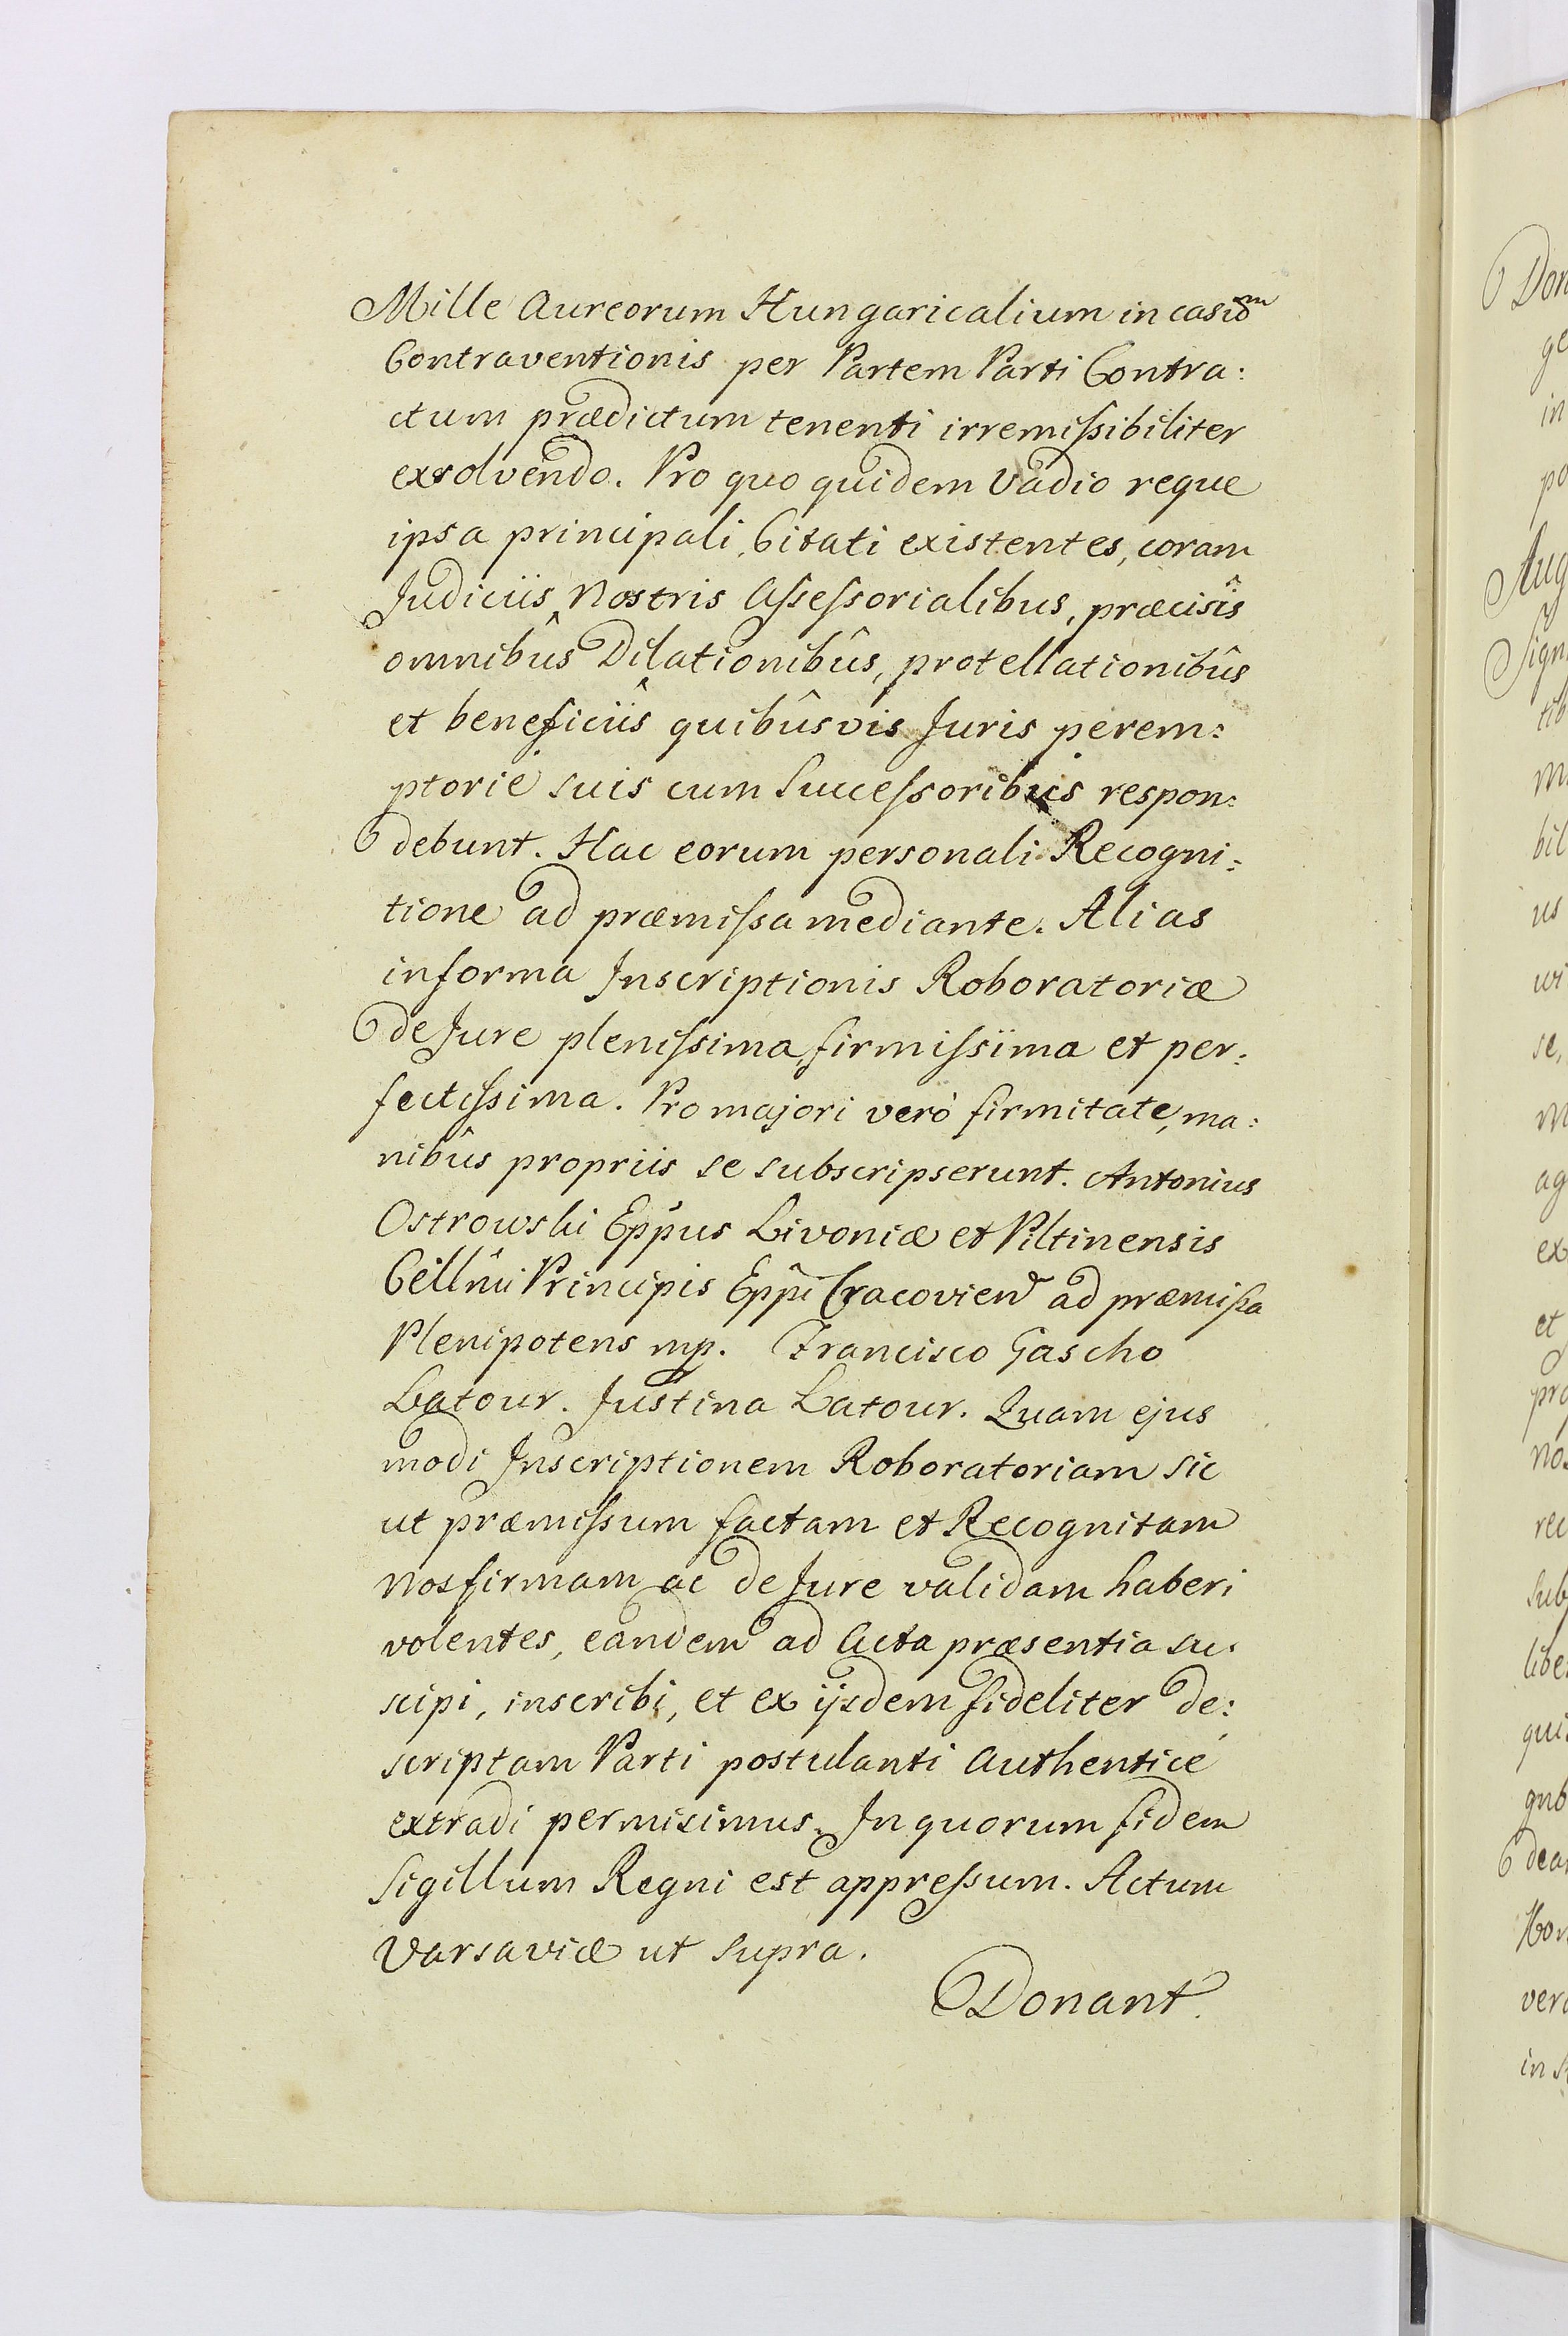 Mille Aureorum Hungaricalium in casũm
Contraventionis per Partem Parti Contra:
ctum prædictum tenenti irremiſsibiliter
exsolvendo. Pro quo quidem Vadio reque
ipsa principali, Citati existentes, coram
Judiciis Nostris Aſseſsorialibus, præcisîs
omnibûs Dilationibûs, protellationibûs
et beneficiîs quibûsvis Juris perem:
ptoriè suis cum Succeſsoribus respon:
debunt. Hac eorum personali Recogni:
tione ad præmiſsa mediante. Alias
in forma Inscriptionis Roboratoriæ
de Jure pleniſsima, firmiſsima et per:
fectiſsima. Pro majori verò firmitate, ma:
nibûs propriis se subscripserunt. Antonius
Ostrowski Eppus Livoniæ et Piltinensis
Cellm̂i Principis Epp̂i Cracovien̄ ad præmiſsa
Plenipotens mp. Francisco Gascho
Latour. Justina Latour. Quam ejus
modi Inscriptionem Roboratoriam sic
ut præmiſsum factam et Recognitam
Nos firmam ac de Jure validam haberi
volentes, eandem ad Acta præsentia su:
scipi, inscribi, et ex ijsdem fideliter de:
scriptam Parti postulanti Authenticè
extradi permisimus. In quorum fidem
Sigillum Regni est appreſsum. Actum
Varsaviæ ut supra.
Donant.
Don
ge
in
po
Aug
Sign
tib
bil
us
wi
se,
ag
ex
et
pro
nos
rec
sub
libe
qui
dea
vero
in s